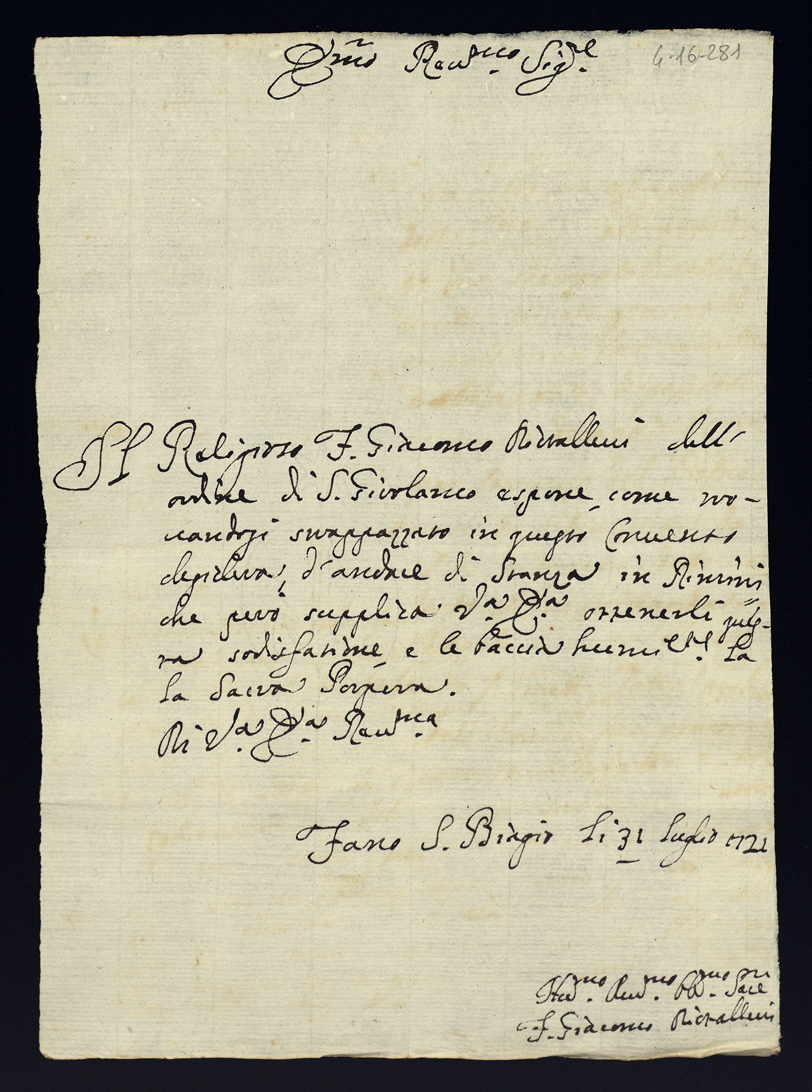 Em̃o Reud.mo Sig.re
4-16-281
Il Religioso F. Giacomo Rivallini dell'
ordine di S. Girolamo espone come tro-
uandosi strappazzato in questo Conuento
desidera, d'andare di Stanza in Rimini
che però supplica V.a E.a ottenerli
ta sodisfatione e le baccia humil.te la
la Sacra Porpora.
Di V.a E.a Reu.ma
Fano S. Biagio li 31 luglio 1721
Hu.mo Deu.mo Ob.mo Ser.re
F. Giacomo Rivallini